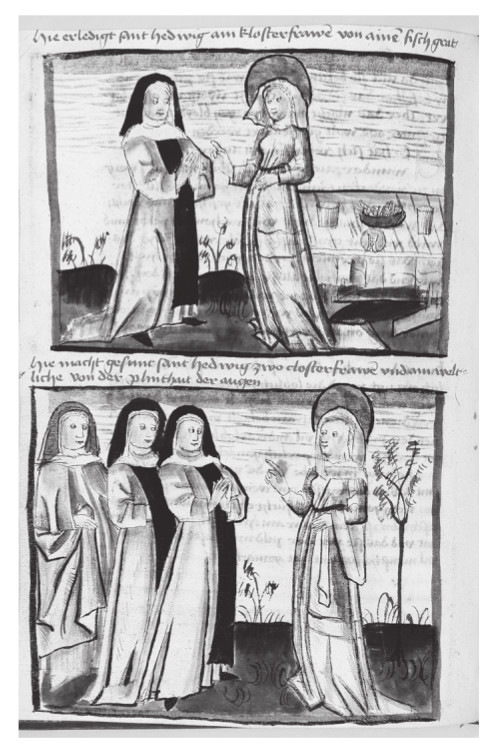 hie erledigt sant hedwig ain klosterfrawē von ainē fisch grat
hie macht gesunt sant hedwig zwo closterfrawē vnd ain welt-
liche von der plinthait der augen